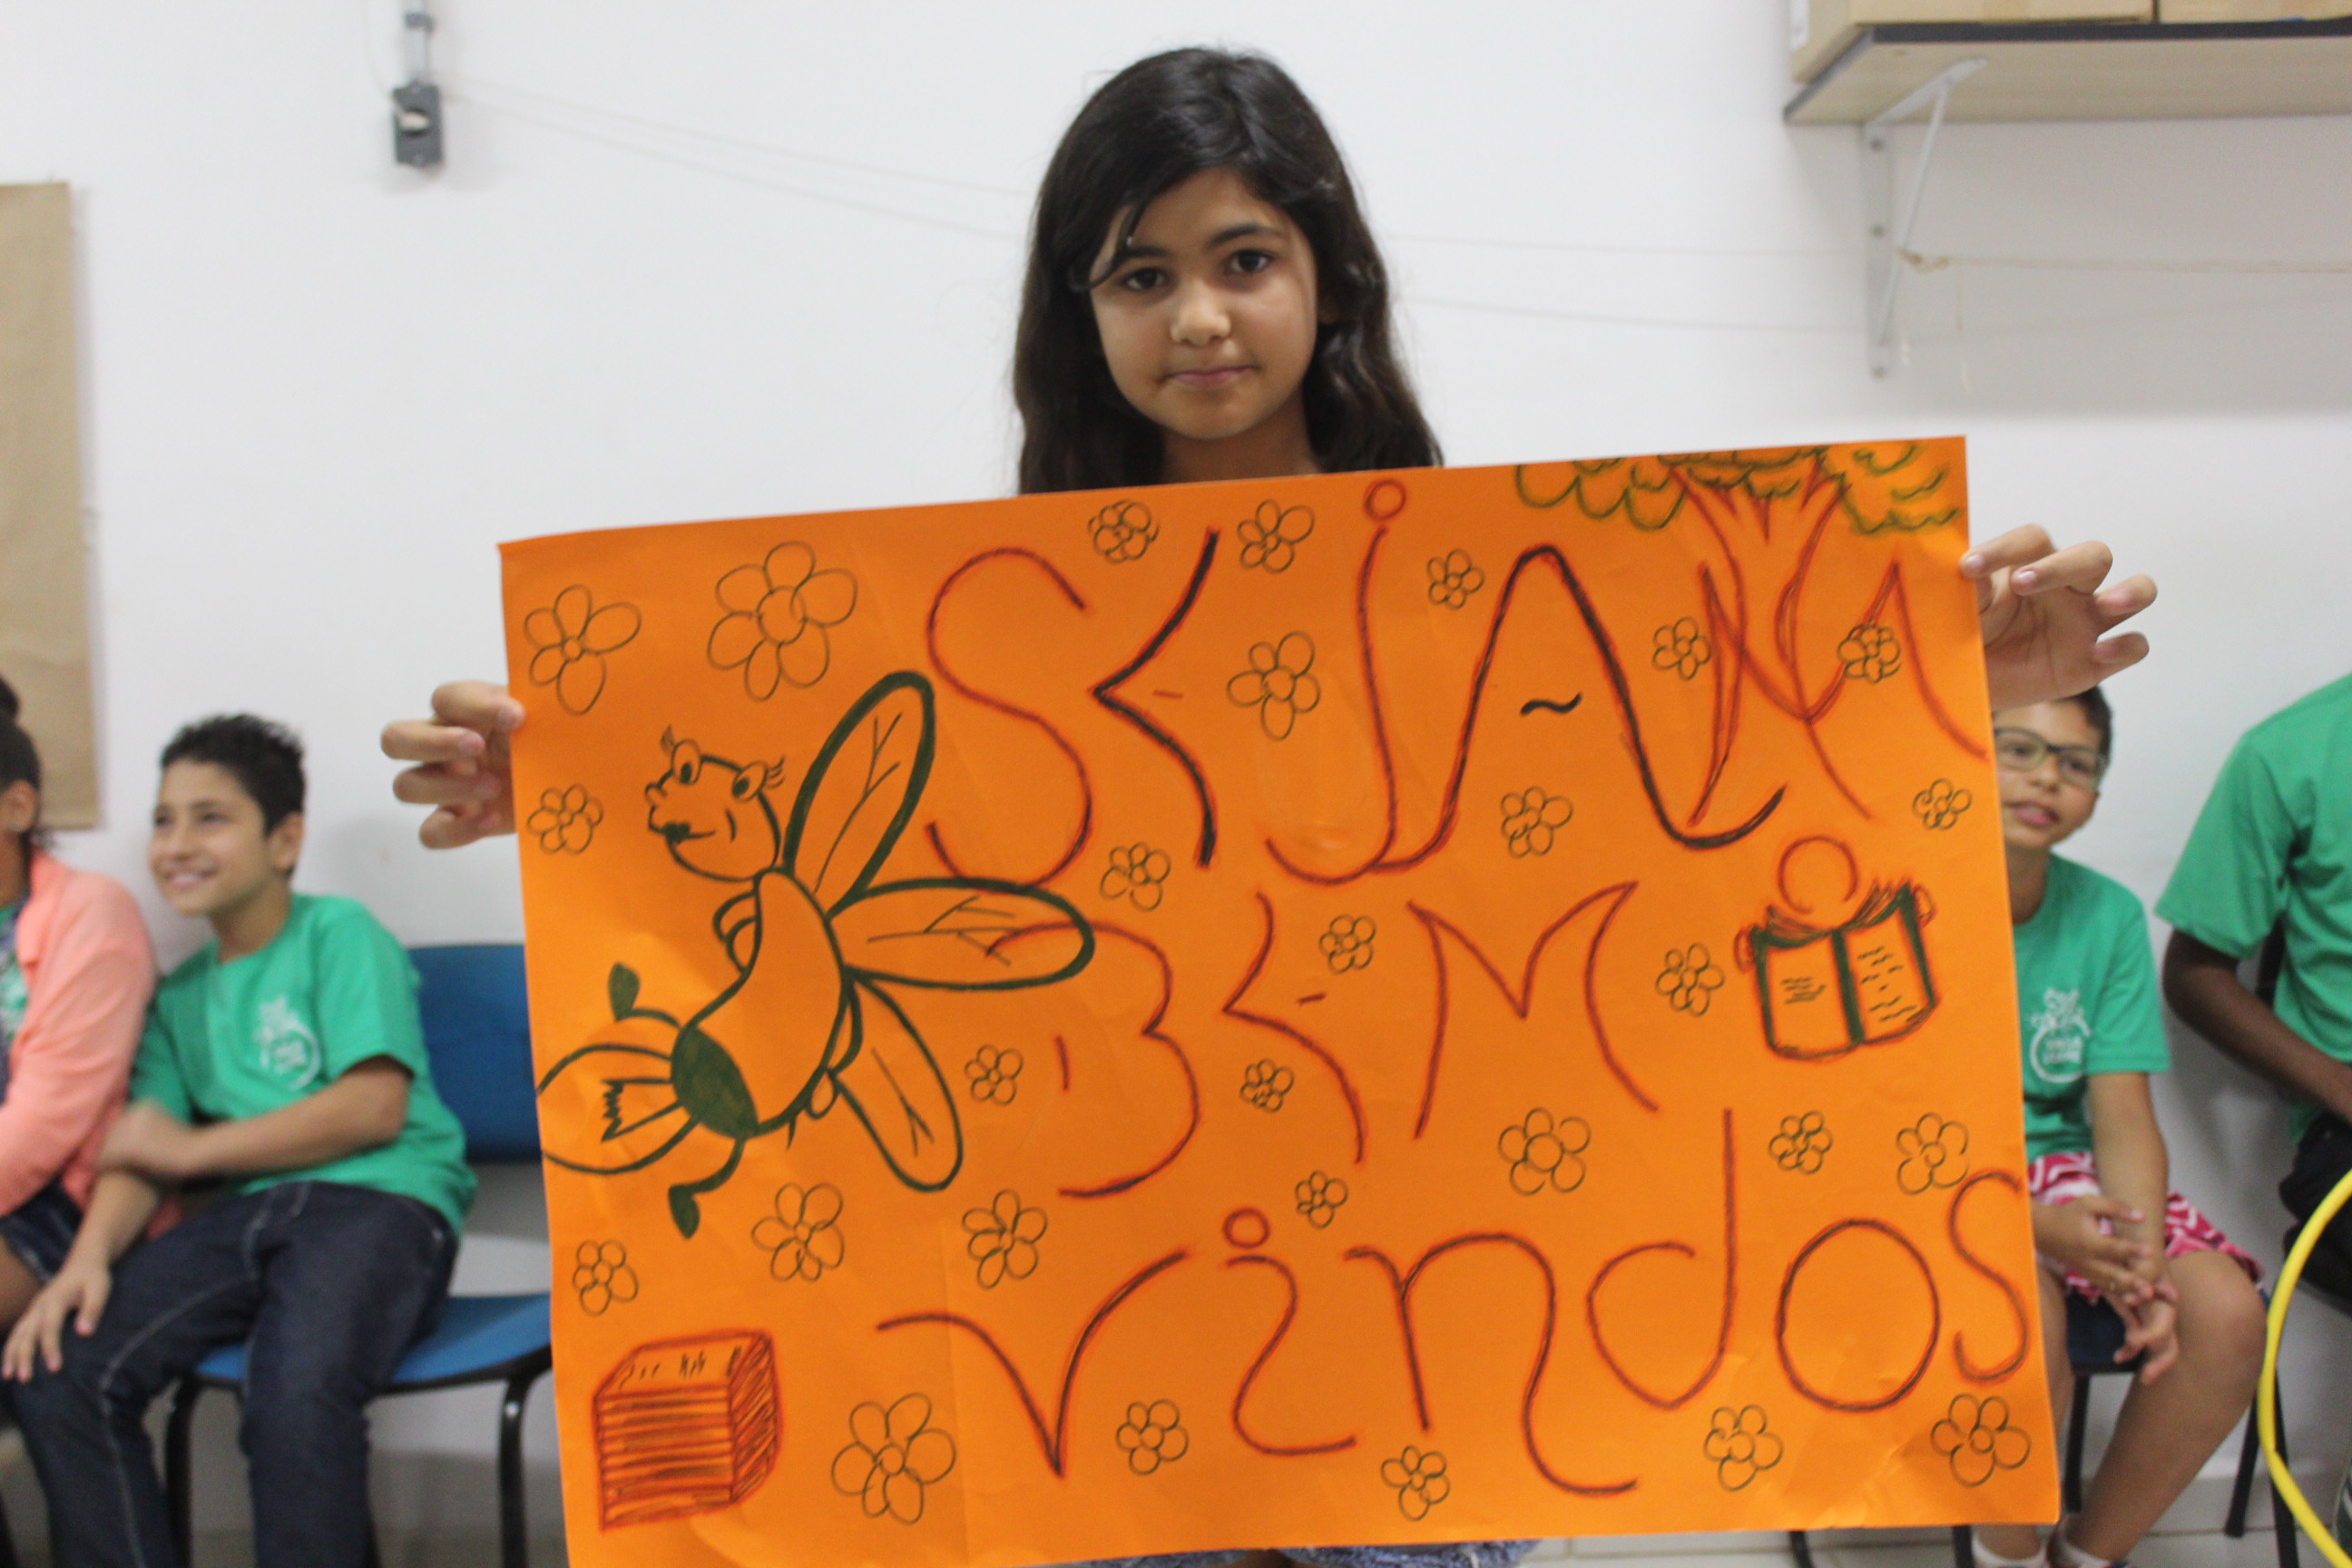 SEJAM
BEM
vindos